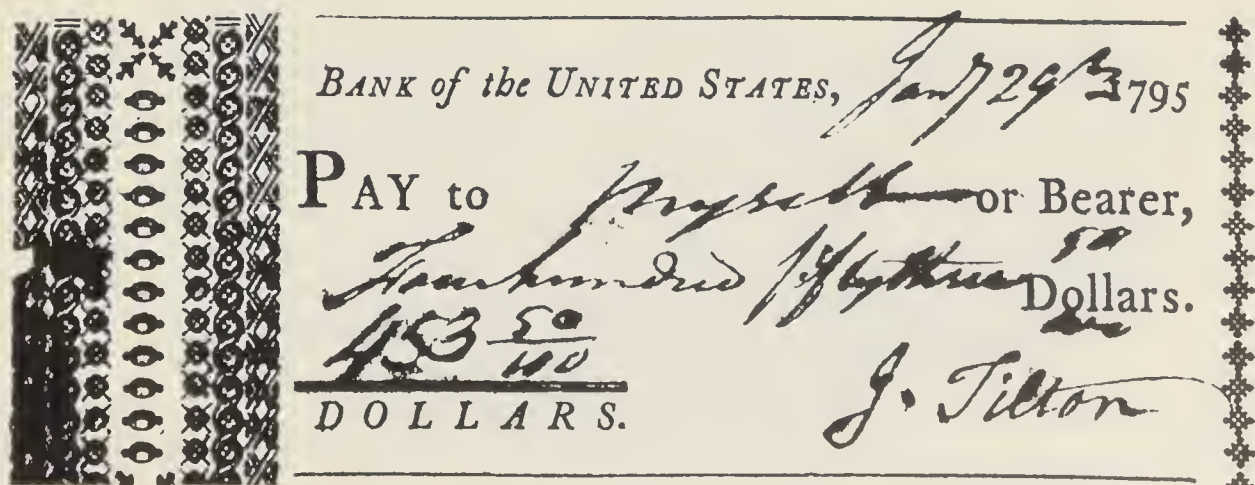 BANK of the UNITED STATES, Jany 29th 1795
PAY to myself or Bearer,
Four hundred fifty three 50 Dollars.
453 50/100
DOLLARS.
J. Tilton